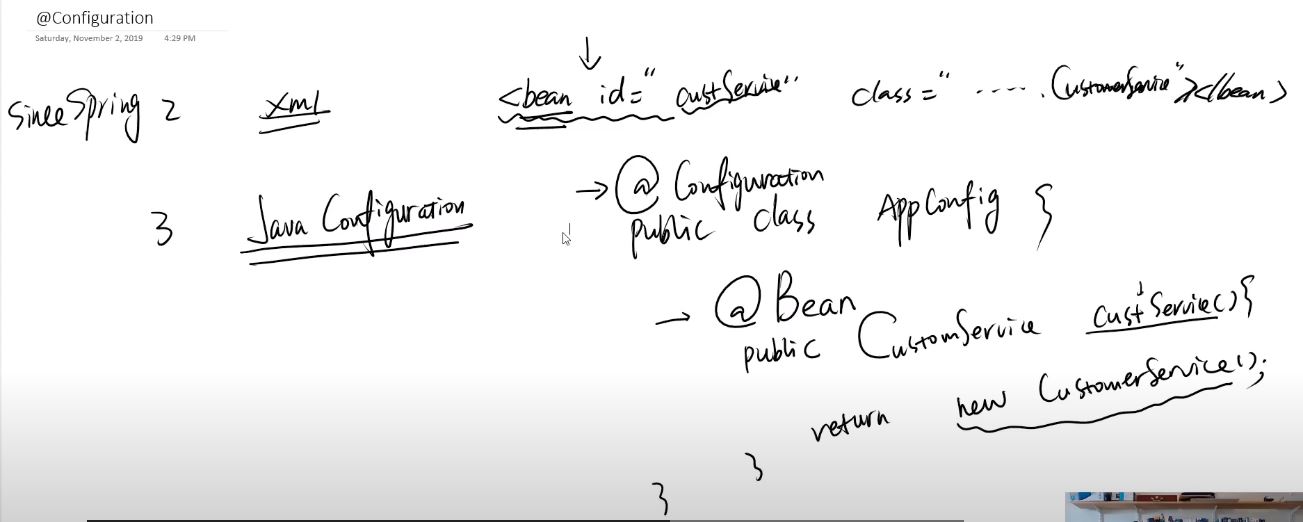 @Configuration
Saturday, November 2, 2019 4:29 PM
Since Spring 2 XML <bean id="custService" class=" ..... CustomerService"></bean>
3 Java Configuration → @Configuration
public class AppConfig {
→ @Bean
public CustomService custService(){
return new CustomerService();
}
}